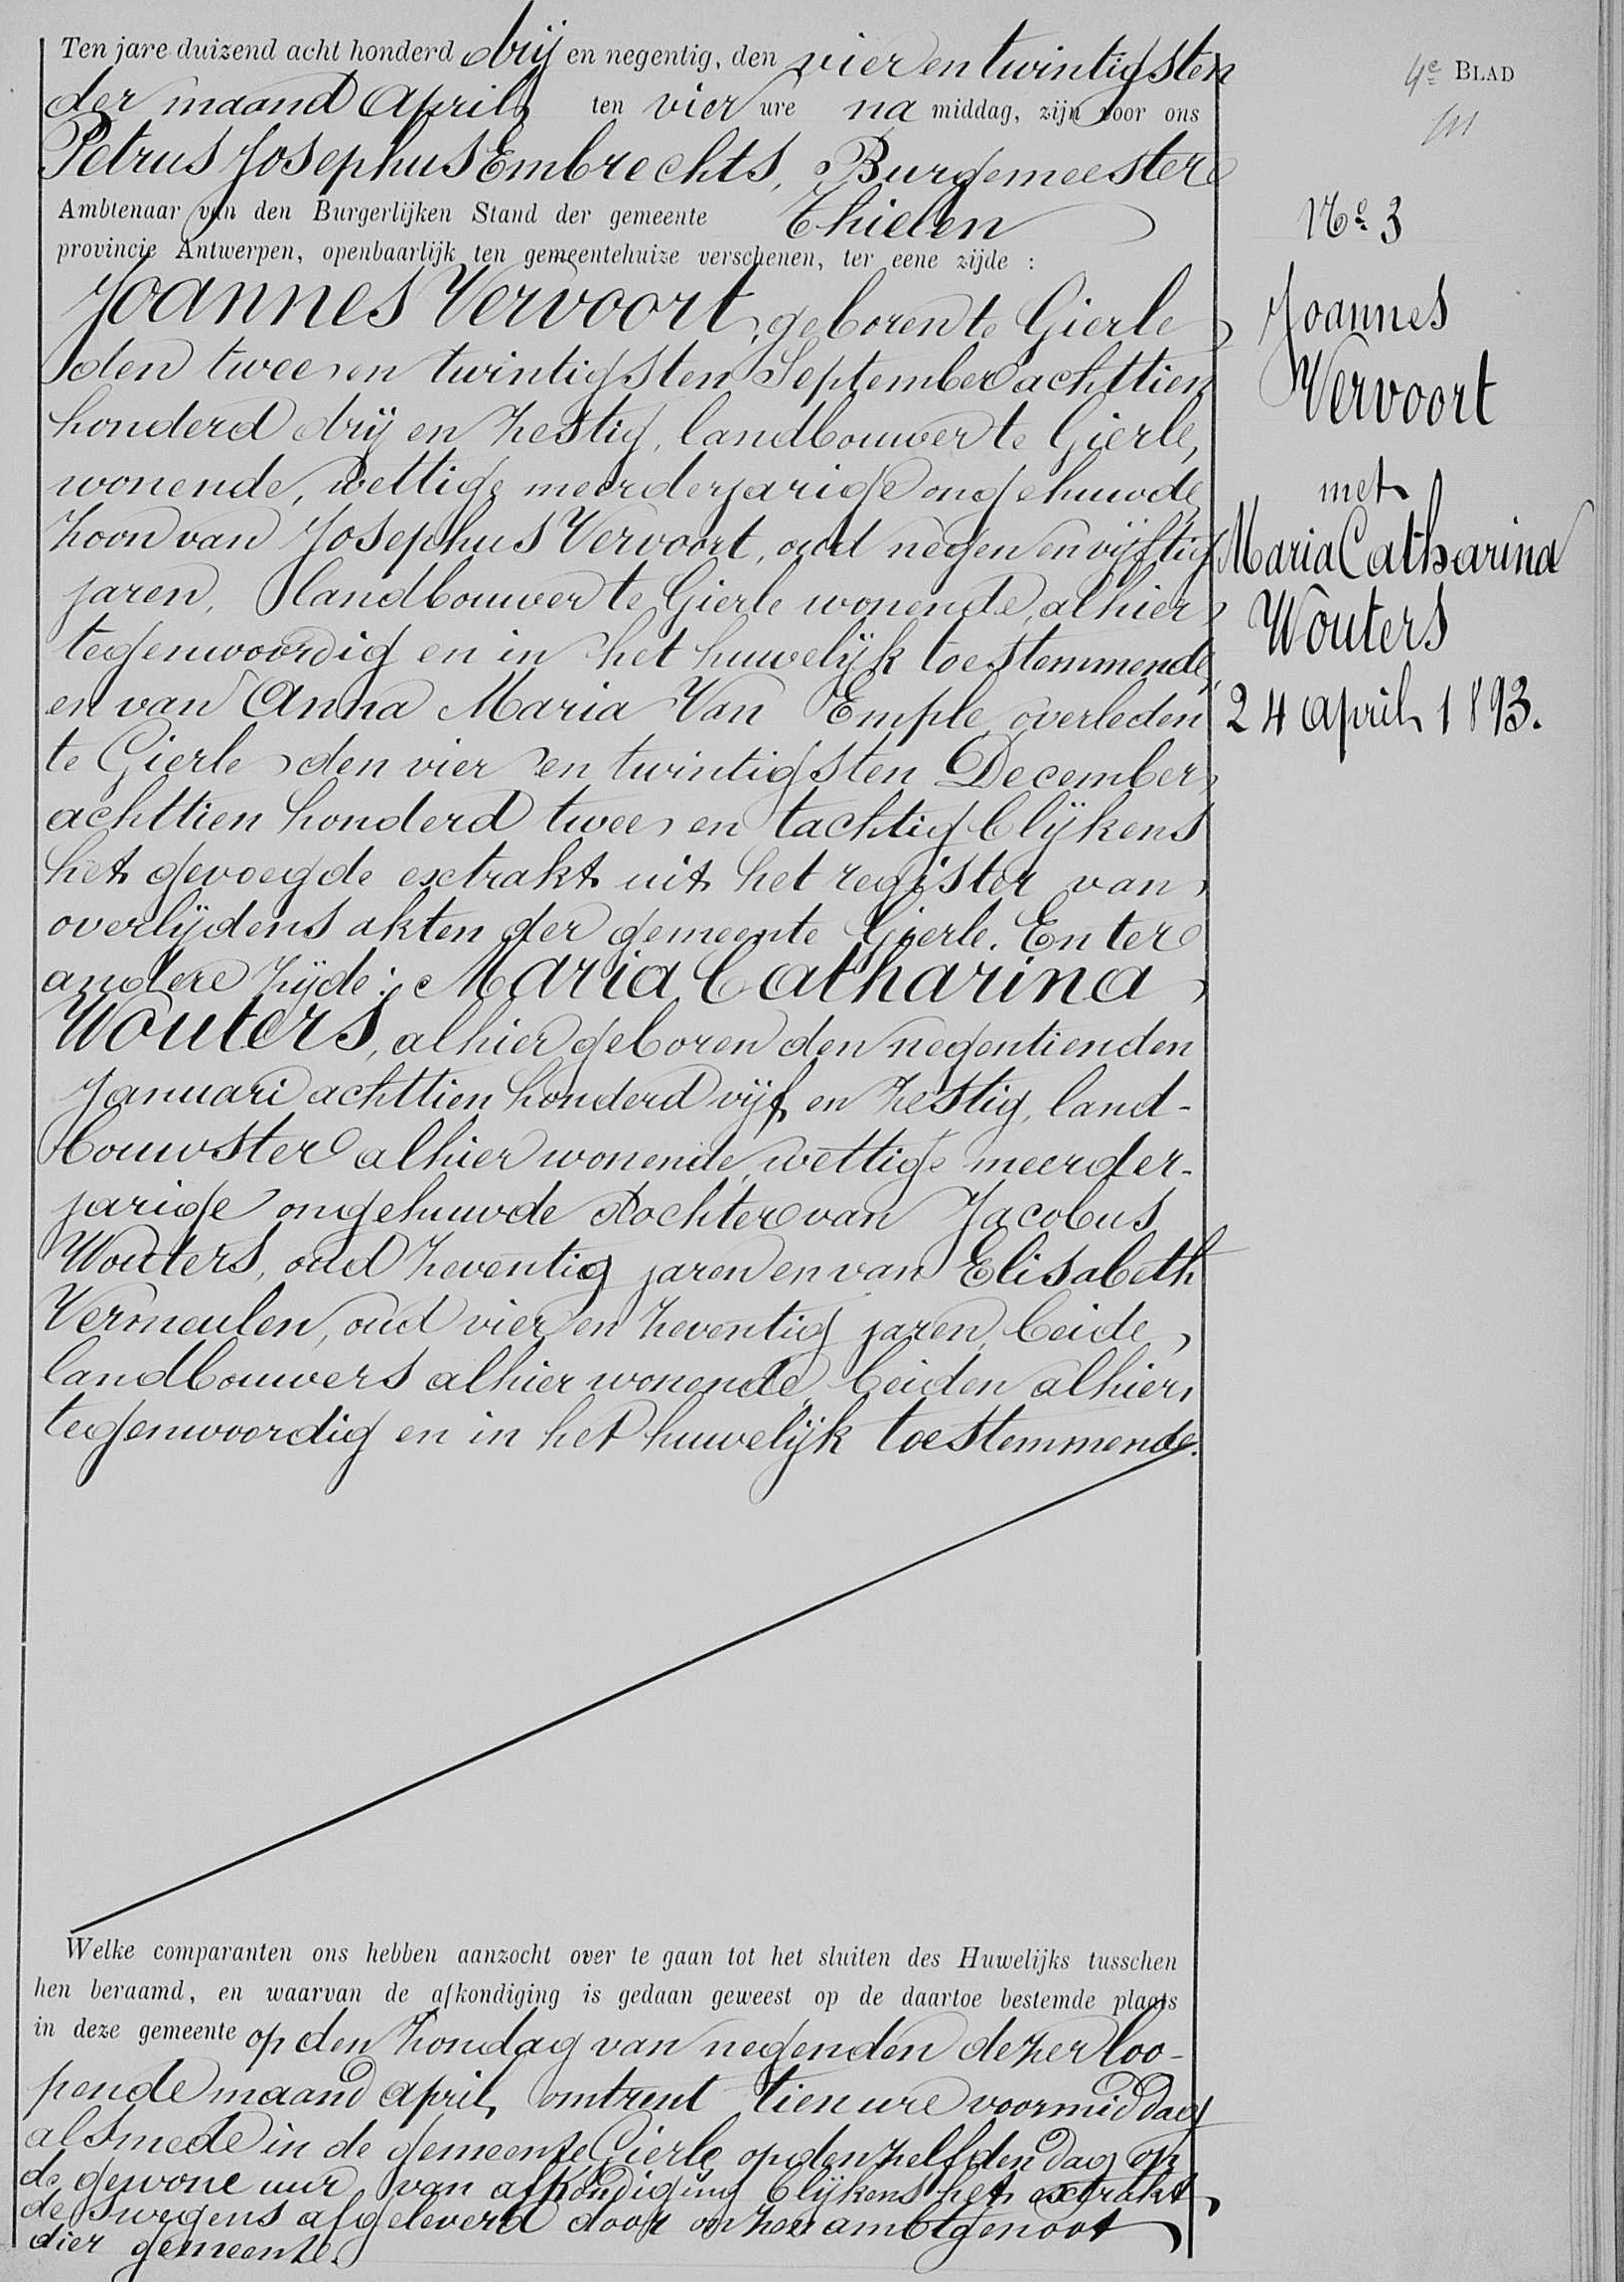 Ten jare duizend acht honderd drij en negentig, den vier en twintigsten
der maand April ten vier ure na middag, zijn voor ons
Petrus Josephus Embrechts, Burgemeester
Ambtenaar van den Burgerlijken Stand der gemeente Thielen
provincie Antwerpen, openbaarlijk ten gemeentehuize verschenen, ter eene zijde :
Joannes Vervoort, geboren te Gierle
den twee en twintigsten September achttien
honderd drij en zestig, landbouwer te Gierle,
wonende, wettige meerderjarige ongehuwde
zoon van Josephus Vervoort, oud negen en vijftig
jaren, landbouwer te Gierle wonende, alhier
tegenwoordig en in het huwelijk toestemmende,
en van Anna Maria Van Emple, overleden
te Gierle den vier en twintigsten December
achttien honderd twee en tachtig blijkens
het gevoegde extrakt uit het register van
overlijdens akten der gemeente Gierle. En ter
andere zijde: Maria Catharina
Wouters, alhier geboren den negentienden
Januari achttien honderd vijf en zestig, land-
bouwster alhier wonende, wettige meerder-
jarige ongehuwde dochter van Jacobus
Wouters, oud zeventig jaren en van Elisabeth
Vermeulen, oud vier en zeventig jaren, beide
landbouwers alhier wonende, beiden alhier
tegenwoordig en in het huwelijk toestemmende.
Welke comparanten ons hebben aanzocht over te gaan tot het sluiten des Huwelijks tusschen
hen beraamd, en waarvan de afkondiging is gedaan geweest op de daartoe bestemde plaats
in deze gemeente op den zondag van negenden dezer loo-
pende maand April, omtrent tien ure voormiddag
alsmede in de gemeente Gierle op denzelfden dag op
de gewone uur van afkondiging blijkens het extrakt
deswegens afgeleverd door onzen ambtgenoot
dier gemeente.
4e BLAD
No 3
Joannes
Vervoort
met
Maria Catharina
Wouters
24 april 1893.